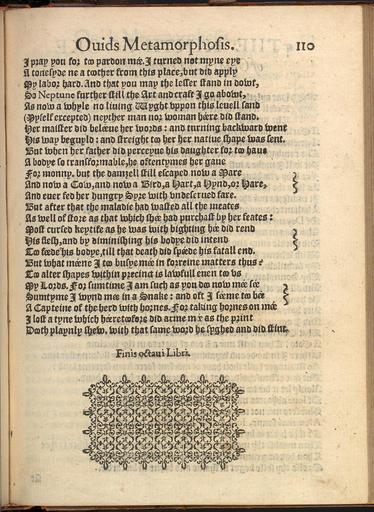 Ouids Metamorphosis. 110
I pray you for too pardon mee. I turned not myne eye
A tonesyde ne a toother from this place, but did apply
My labor hard. And that you may the lesser stand in dowt,
So Neptune further still the Art and craft I go abowt,
As now a whyle no liuing Wyght vppon this leuell sand
(Myself excepted) neyther man nor woman heere did stand.
Her maister did beleeue her words: and turning backward went
His way beguyld: and streight to her her natiue shape was sent.
But when her father did perceyue his daughter for too haue
A bodye so transformable, he oftentymes her gaue
For monny. but the damzell still escaped now a Mare
And now a Cow, and now a Bird, a Hart, a Hynd, or Hare,
And euer fed her hungry Syre with vndeserued fare.
But after that the maladie had wasted all the meates
As well of store as that which shee had purchast by her feates:
Most cursed keytife as he was with bighting hee did rend
His flesh, and by diminishing his bodye did intend
To feede his bodye, till that death did speede his fatall end.
But what meene I too busye mee in forreine matters thus?
To alter shapes within precinct is lawfull euen to vs
My Lords. For sumtime I am such as you doo now mee see
Sumtyme I wynd mee in a Snake: and oft I seeme too bee
A Capteine of the herd with hornes. For taking hornes on mee
I lost a tyne which heeretofore did arme mee as the print
Dooth playnly shew. with that same word he syghed and did stint.
Finis octaui Libri.